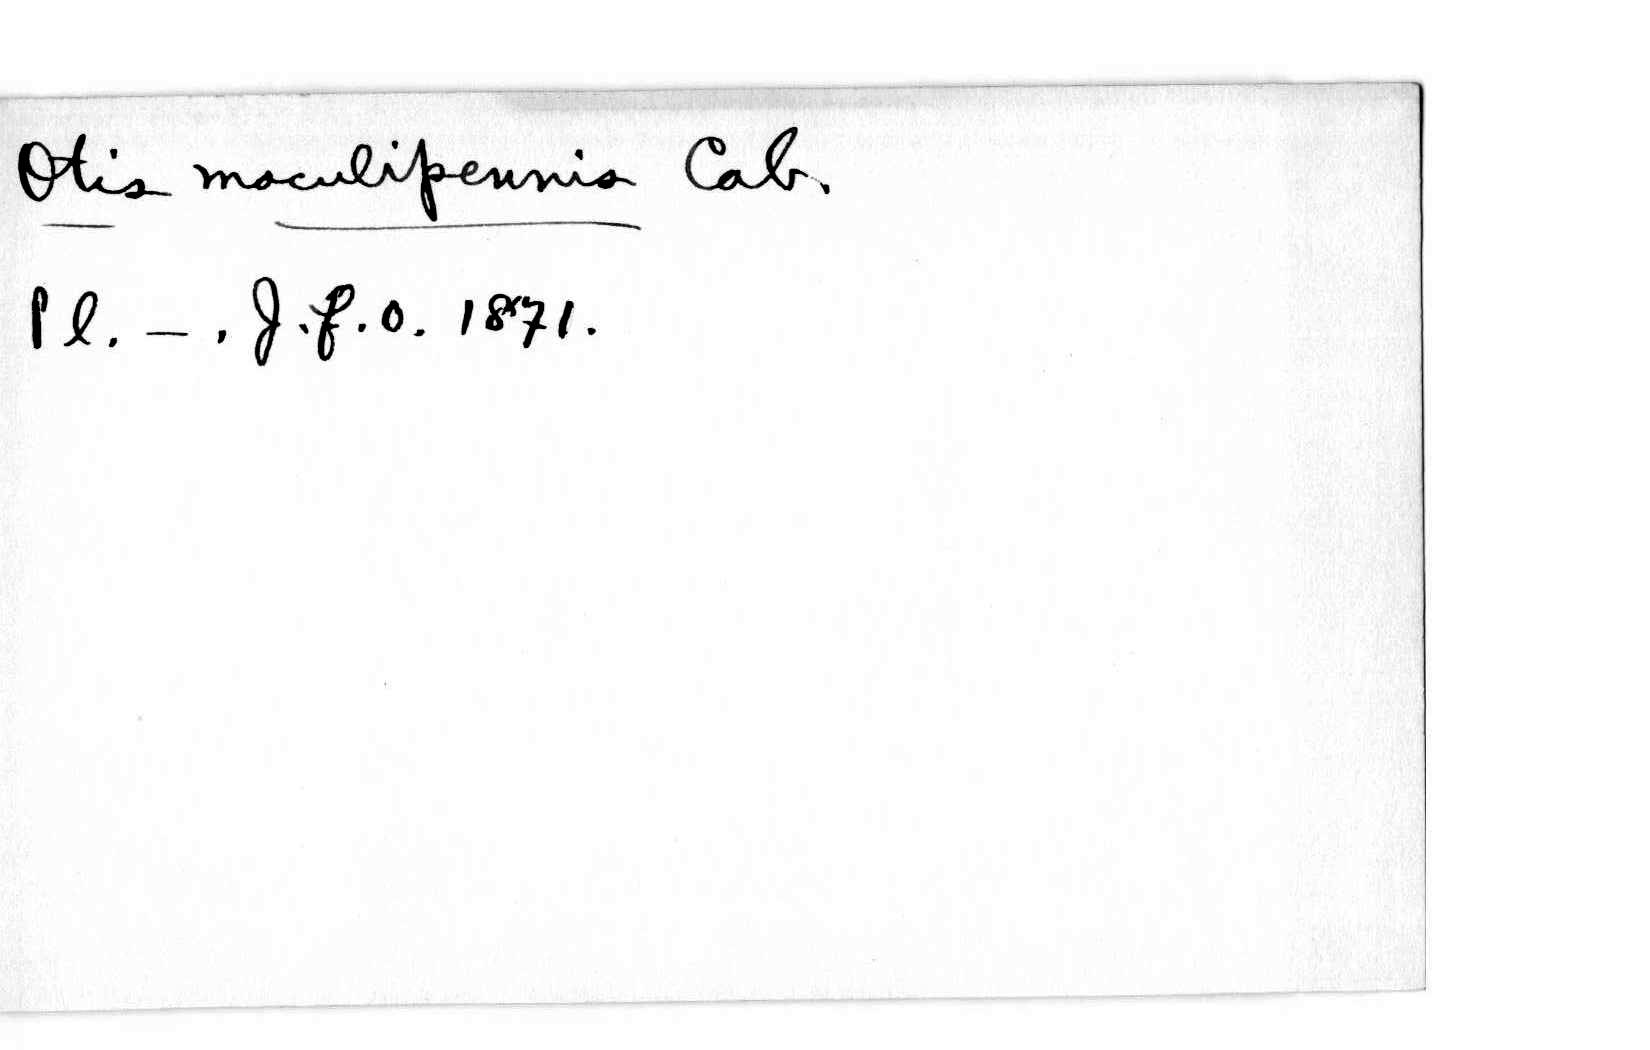 Otis maculipennis Cab.
Pl. – . J.f.O. 1871.